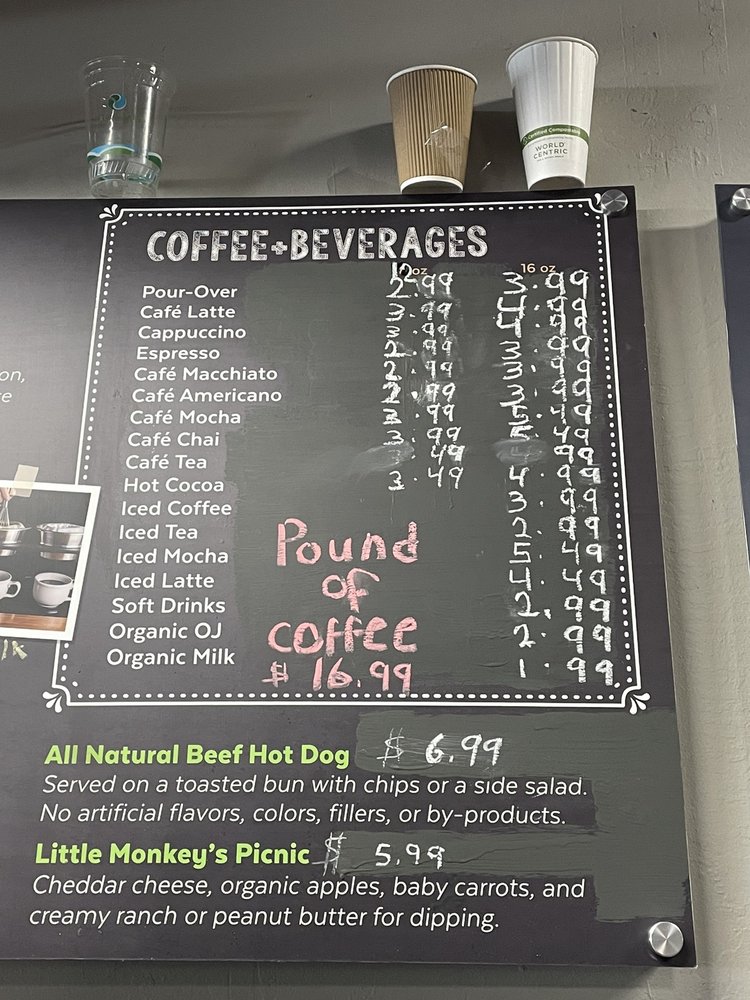 Certified Compostable
WORLD CENTRIC
COFFEE+BEVERAGES
12 oz 16 oz
Pour-Over 2.99 3.99
Café Latte 3.99 4.99
Cappuccino 3.99 4.99
Espresso 2.99 3.99
Café Macchiato 2.99 3.99
Café Americano 2.99 3.99
Café Mocha 3.99 5.49
Café Chai 3.99 5.49
Café Tea 3.49
Hot Cocoa 3.49 4.99
Iced Coffee 3.99
Iced Tea 2.99
Iced Mocha 5.49
Iced Latte 4.49
Soft Drinks 2.99
Organic OJ 2.99
Organic Milk 1.99
Pound
of
coffee
$ 16.99
All Natural Beef Hot Dog $ 6.99
Served on a toasted bun with chips or a side salad.
No artificial flavors, colors, fillers, or by-products.
Little Monkey's Picnic $ 5.99
Cheddar cheese, organic apples, baby carrots, and
creamy ranch or peanut butter for dipping.